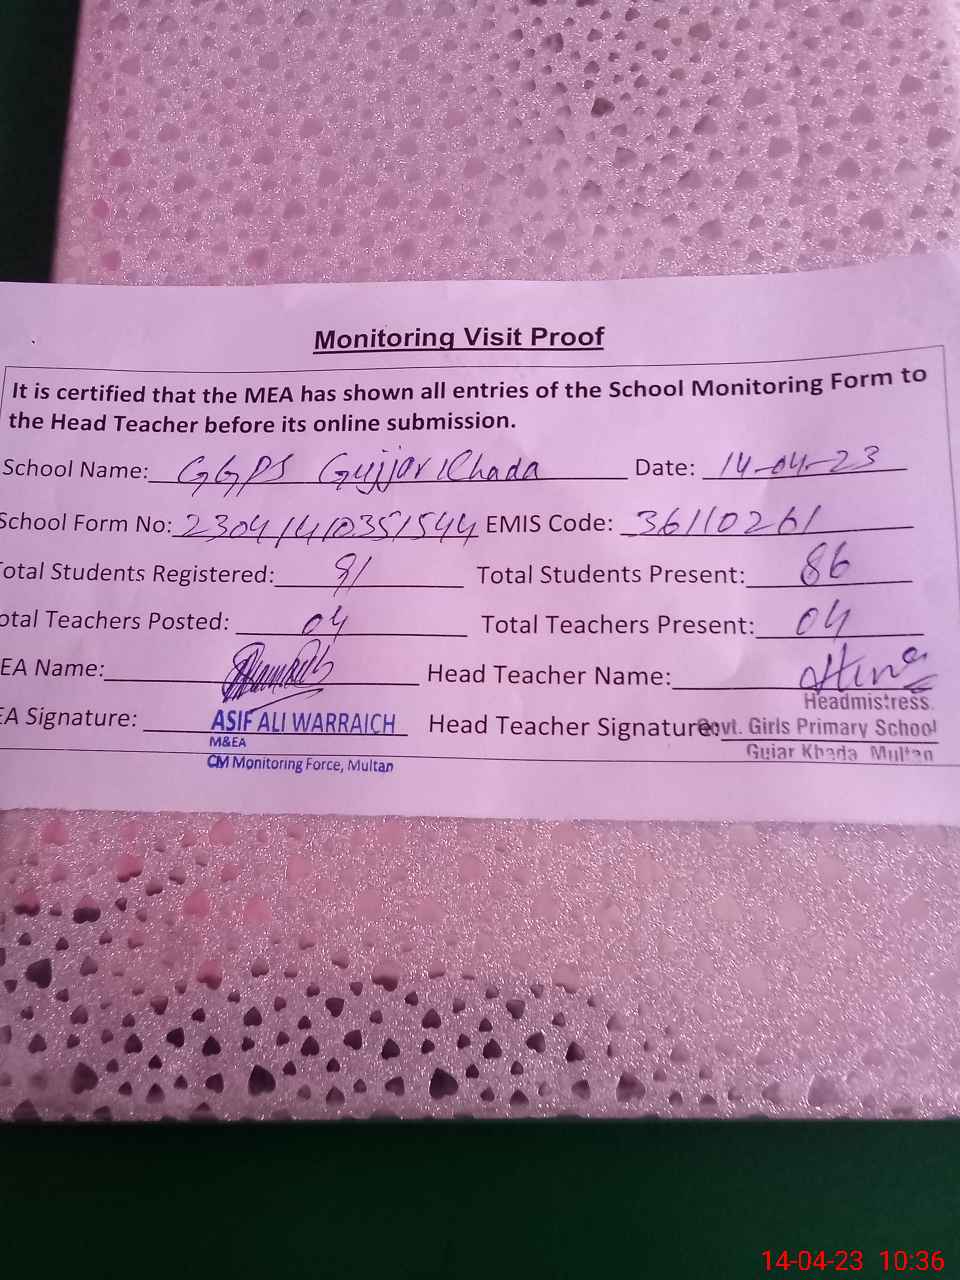 Monitoring Visit Proof
It is certified that the MEA has shown all entries of the School Monitoring Form to
the Head Teacher before its online submission.
School Name: GGPS Gujjar Khada Date: 14-04-23
School Form No: 23041410351544 EMIS Code: 36110261
otal Students Registered: 91 Total Students Present: 86
otal Teachers Posted: 04 Total Teachers Present: 04
EA Name: Head Teacher Name:
Headmistress
EA Signature: ASIF ALI WARRAICH Head Teacher Signature: Govt. Girls Primary School
M&EA
Gujar Khada Multan
CM Monitoring Force, Multan
14-04-23 10:36